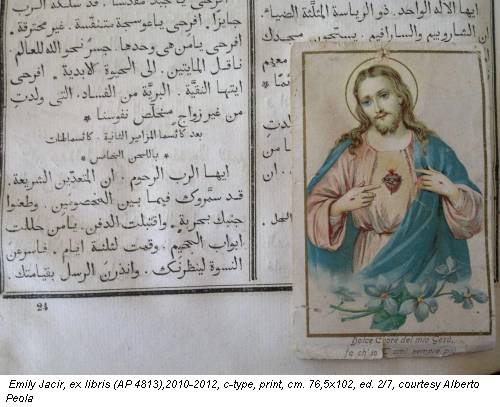 ايها الاله الواحد. ذو الرياسة المثلثة الضياء.
والسارافيم .
جايزا . افرحي ياعوسجة متنفسة . غير محترقة *
افرحي يا من هي وحدها . جسر نحو الله للعالم .
ناقل المايتين . الى الحيوة الابدية * افرحي
ايتها النقية . البرية من الفساد . التي ولدت
من غير زواج . مخلص نفوسنا *
بعد كاثسما المزامير الثانية . كاثسماطات
* باللحن الخامس *
ايها الرب الرحوم . ان المتعدين الشريعة .
قد سمروك فيما بين . وطعنوا
جنبك بحربة . واقتبلت الدفن . يا من حللت
ابواب الجحيم . وقمت لثلثة ايام . فاسرعن
النسوة لينظرنك . وانذرن الرسل بقيامتك
24
Dolce Cuore del mio Gesù,
fa ch'io t'ami sempre più
Emily Jacir, ex libris (AP 4813),2010-2012, c-type, print, cm. 76,5x102, ed. 2/7, courtesy Alberto
Peola